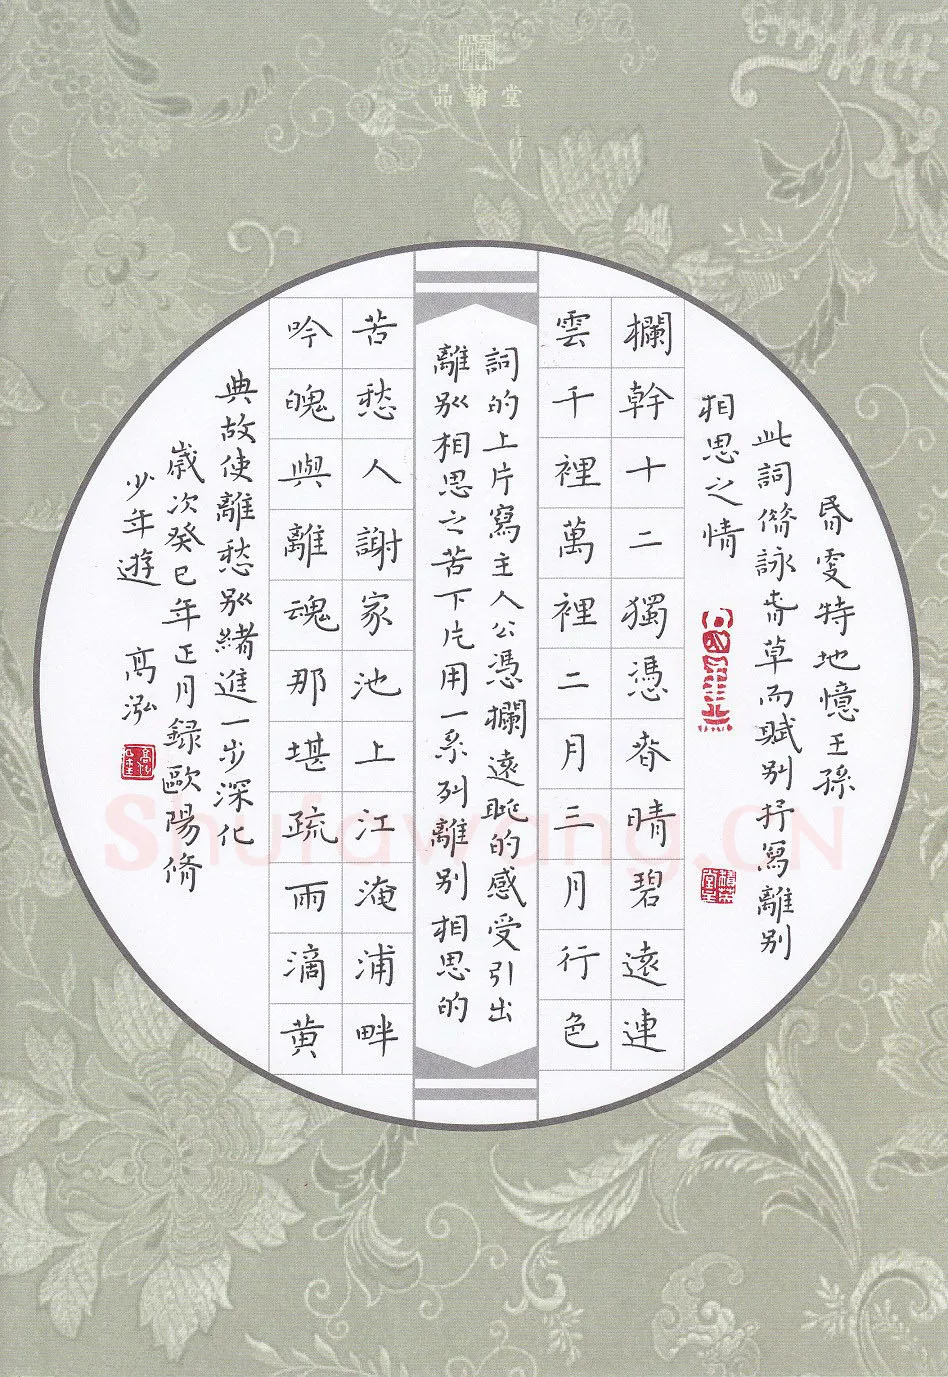 品翰堂
欄幹十二獨憑春晴碧遠連
雲千裡萬裡二月三月行色
苦愁人謝家池上江淹浦畔
吟魄與離魂那堪疏雨滴黄
昏更特地憶王孫
此詞借詠春草而賦别抒寫離别
相思之情
詞的上片寫主人公憑欄遠眺的感受引出
離别相思之苦下片用一系列離别相思的
典故使離愁别緒進一步深化
歲次癸巳年正月録歐陽脩
少年遊 高泓
Shufawang.CN